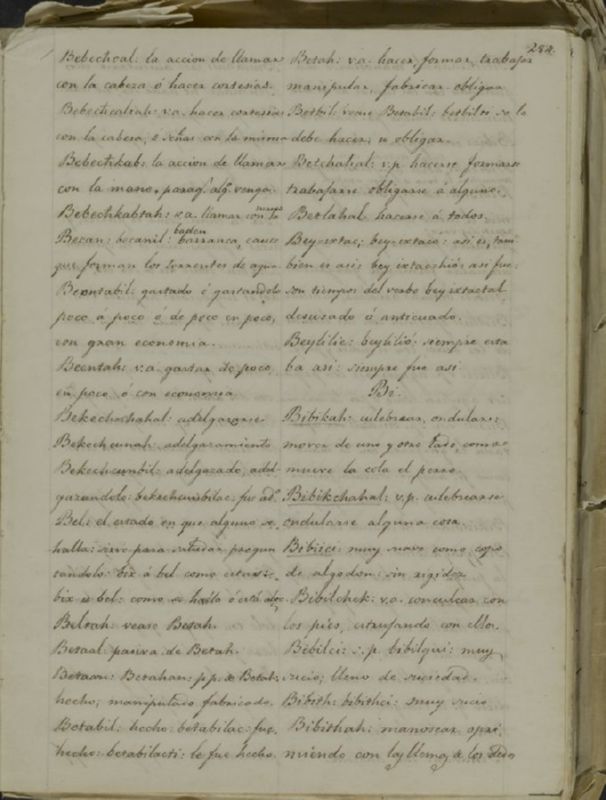 284.
Bebechcal: la accion de llamar
con la cabeza ó hacer cortesias.
Bebechcaltah: v.a. hacer cortesias
con la cabeza, ó señas con la misma
Bebechkab: la accion de llamar
con la mano, paraq.e alg.o venga.
Bebechkabtah: v.a. llamar con la mano
Becan: becanil: barranca, baden cauce
que forman los torrentes de agua
Becntabil: gastado ó gastandolo
poco á poco ó de poco en poco,
con gran economia.
Becntah: v.a. gastar de poco
en poco ó con economia
Bekechchahal: adelgazarse
Bekechcunah: adelgazamiento
Bekechcunbil: adelgazado, adel
gazandolo: bekechcunbilac: fue ad.o
Bel: el estado en que alguno se
halla: sirve para saludar pregun
tandolo: bix á bel como estas:
bix u bel: como se halla ó está
Beltah vease Betah.
Betaal: pasiva de Betah.
Betaan: Betahan: p.p. de Betah:
hecho, manipulado fabricado.
Betabil: hecho: betabilac: fue
hecho: betabilacti: le fue hecho.
Betah: v.a. hacer, formar, trabajar
manipular, fabricar obligar
Betbil: vease Betabil: betbilti se le
debe hacer, u obligar.
Betchahal: v.p. hacerse formarse
trabajarse obligarse á alguno.
Betlahal hacerse á todos.
Beyextac; bey extaco: asi es, tam
bien es asi; bey ixtachió: asi fue:
son tiempos del verbo bey ixtactal
desusado ó anticuado.
Beylilic: beylilió: siempre esta
ba asi: siempre fue asi
Bi.
Bibikah: culebrear, ondular:
mover de uno y otro lado, como
mueve la cola el perro.
Bibikchahal: v.p. culebrearse
ondularse alguna cosa
Bibicci: muy suave como copo
de algodon: sin rigidez
Bibilchek: v.a. conculcar con
los pies, estrujando con ellos.
Bibilci: s.p. bibilqui: muy
sucio, lleno de suciedad.
Bibith: bibithci: muy sucio
Bibithah: manosear, opri
miendo con las llemas de los dedo